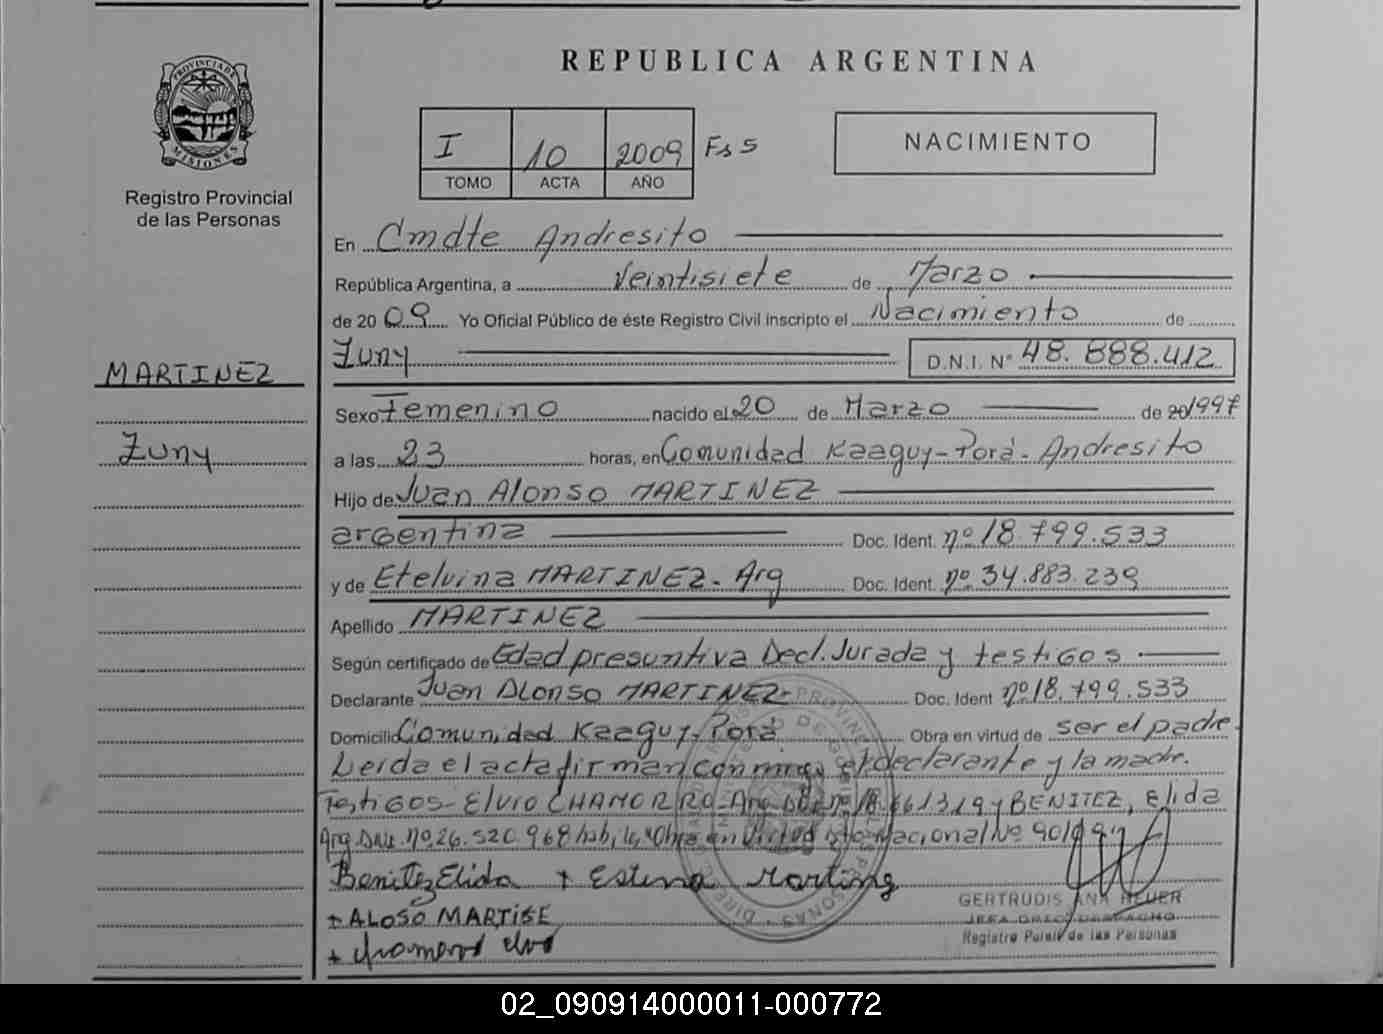 REPUBLICA ARGENTINA
PROVINCIA DE MISIONES
Registro Provincial
de las Personas
I 10 2009 Fs 5
TOMO ACTA AÑO
NACIMIENTO
En Cmdte Andresito
República Argentina, a Veintisiete de Marzo
de 2009 Yo Oficial Público de éste Registro Civil inscripto el Nacimiento de
Zuny D.N.I. N° 48.888.412
MARTINEZ
Zuny
Sexo Femenino nacido el 20 de Marzo de 20/1997
a las 23 horas, en Comunidad Kaaguy-Porá-Andresito
Hijo de Juan Alonso MARTINEZ
argentina Doc. Ident. nº 18.799.533
y de Etelvina MARTINEZ- Arg Doc. Ident. nº 34.883.239
Apellido MARTINEZ
Según certificado de Edad presuntiva Decl. Jurada y testigos
Declarante Juan Alonso MARTINEZ- Doc. Ident nº 18.799.533
Domicilio Comunidad Kaaguy-Porá Obra en virtud de ser el padre.
Leida el acta firman conmigo el declarante y la madre.
Testigos- Elvio CHAMORRO- Arg 18.661319 y BENITEZ, Elida
Arg. DNI. nº 26.520.968 Obra en Virtud Nacional Nº
Benitez Elida + Estena Marting
+ ALOSO MARTISE
+ chamorro elvo
GERTRUDIS ANA HEUER
JEFA DESPACHO
Registro de las Personas
02_090914000011-000772